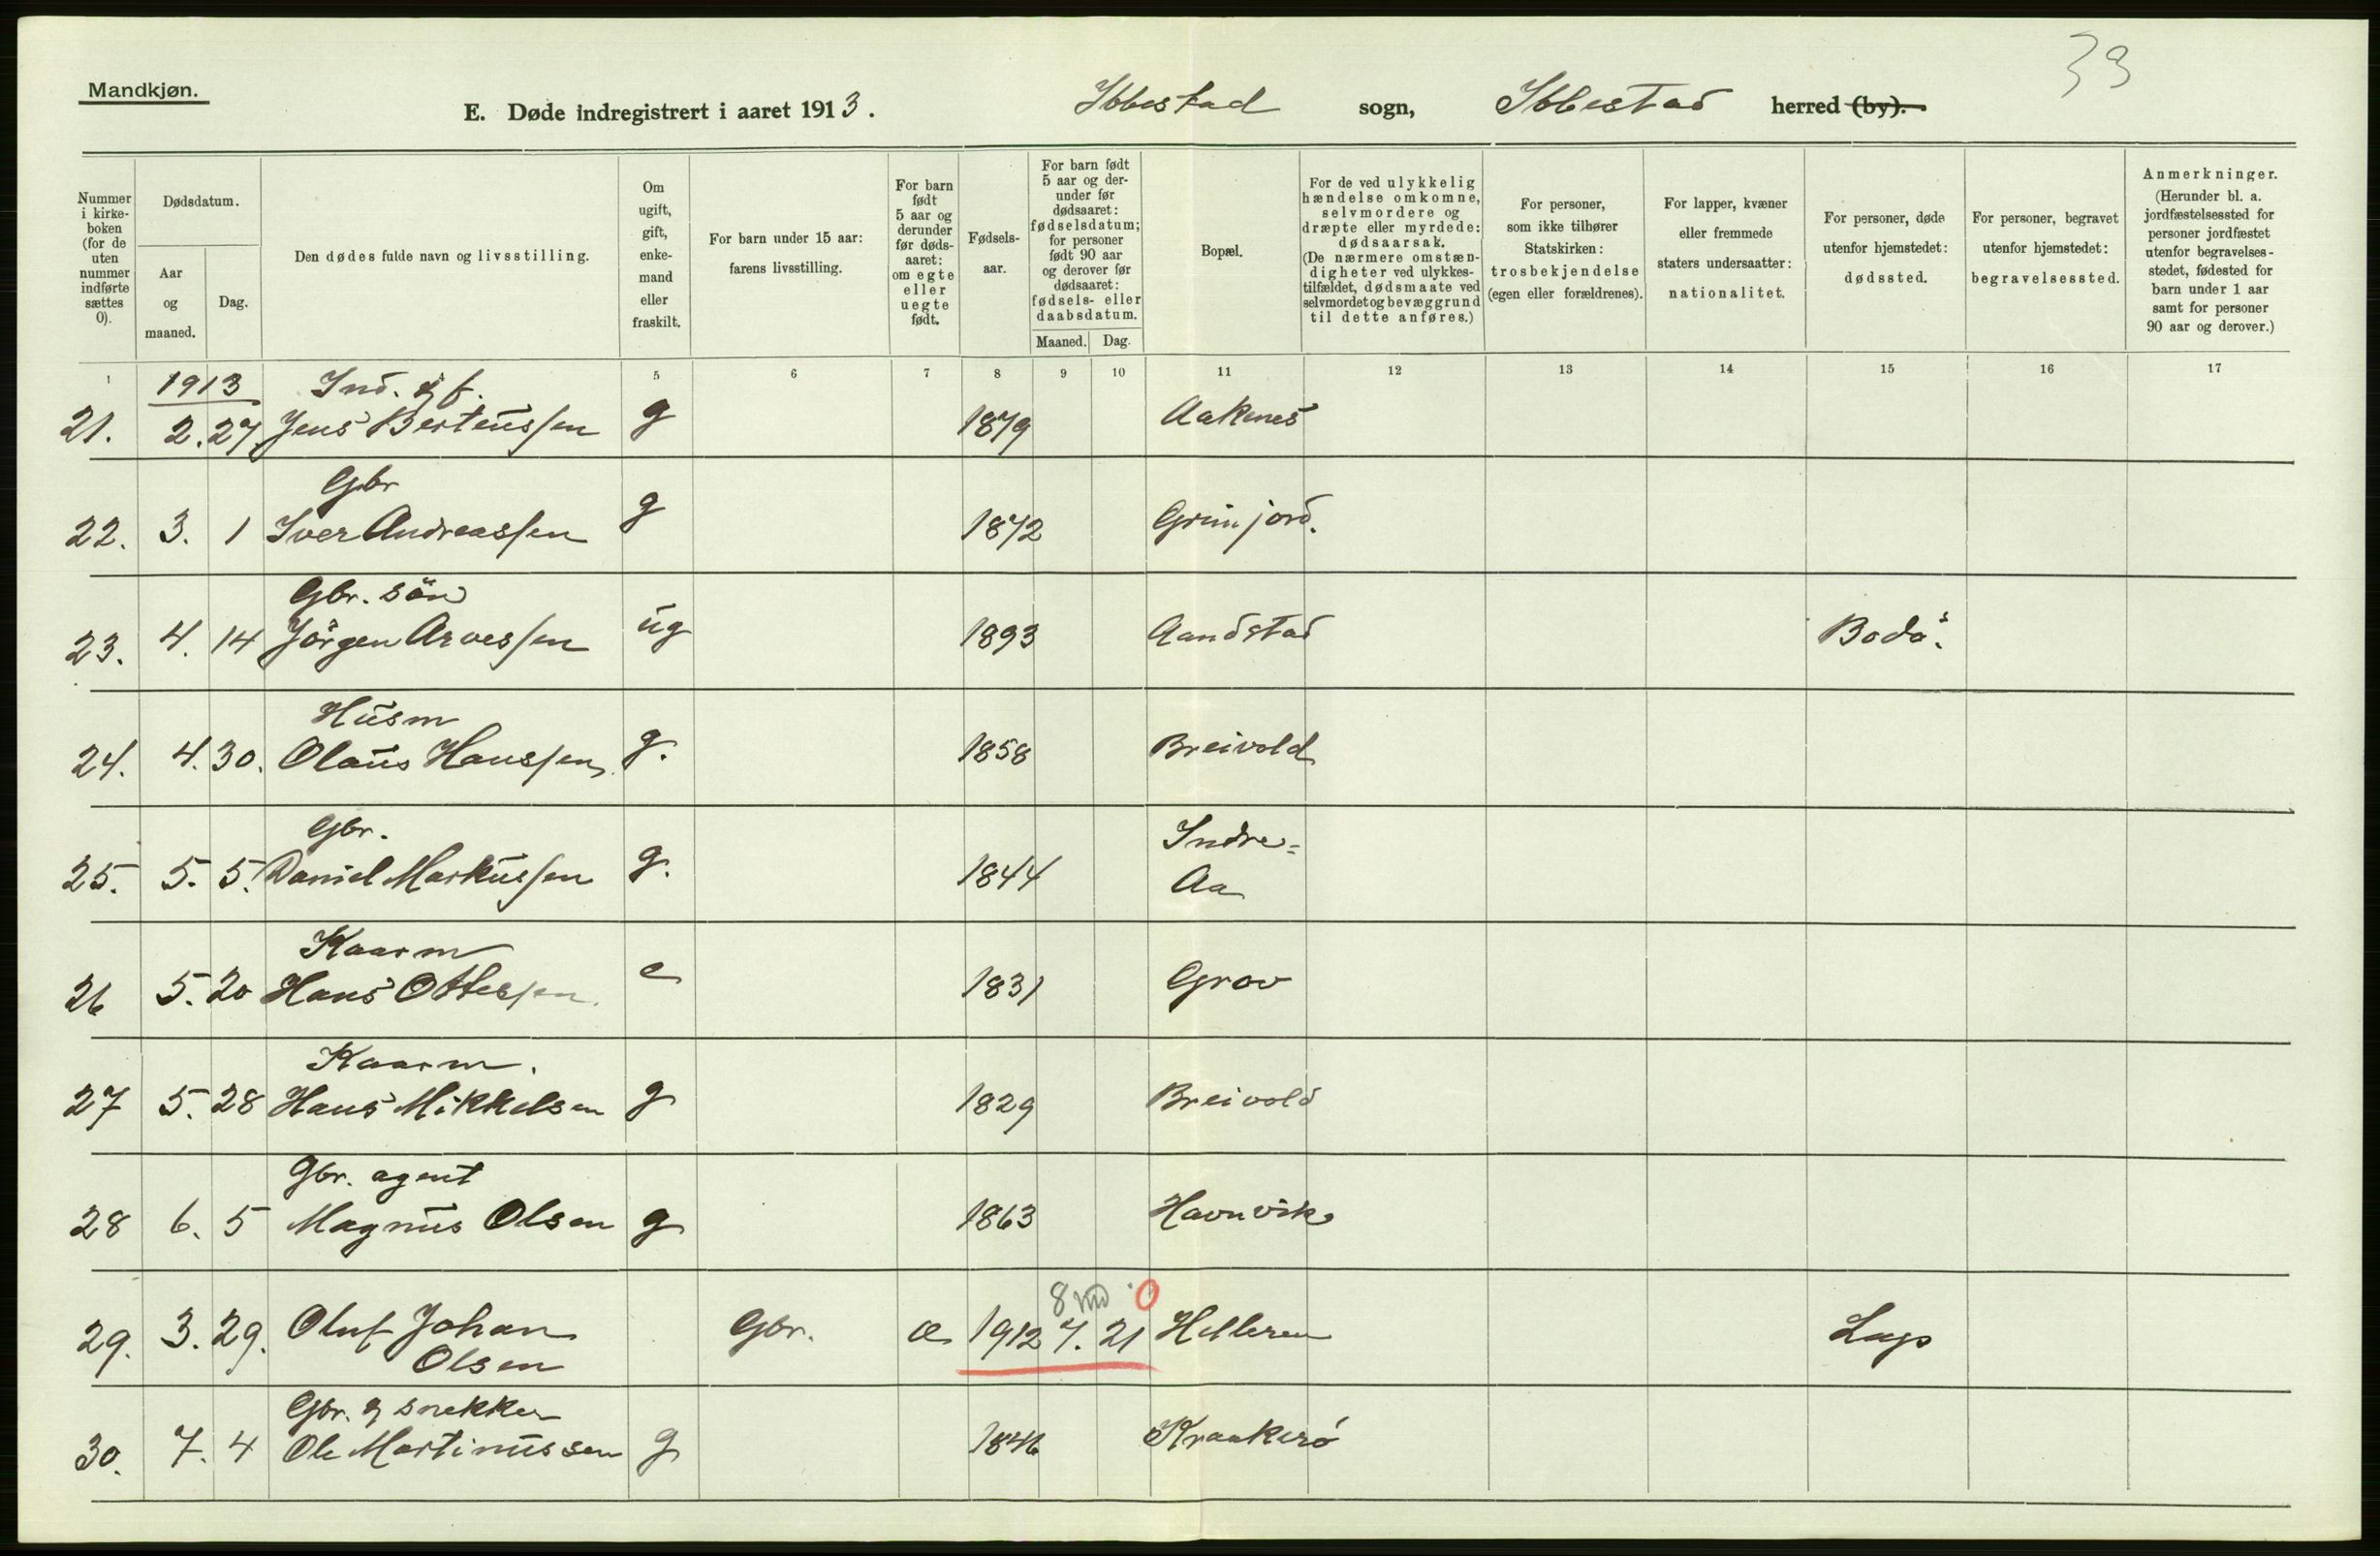 33
Mandkjøn.
E. Døde indregistrert i aaret 1913. Ibbestad sogn, Ibbestad herred (by).
Nummer i kirke-boken (for de uten nummer indførte sættes 0).
Dødsdatum.
Aar og maaned.
Dag.
Den dødes fulde navn og livsstilling.
Om ugift, gift, enke-mand eller fraskilt.
For barn under 15 aar: farens livsstilling.
For barn født 5 aar og derunder før døds-aaret: om egte eller uegte født.
Fødsels-aar.
For barn født 5 aar og der-under før dødsaaret: fødselsdatum; for personer født 90 aar og derover før dødsaaret: fødsels- eller daabsdatum.
Maaned. Dag.
Bopæl.
For de ved ulykkelig hændelse omkomne, selvmordere og dræpte eller myrdede: dødsaarsak. (De nærmere omstæn-digheter ved ulykkes-tilfældet, dødsmaate ved selvmordet og bevæggrund til dette anføres.)
For personer, som ikke tilhører Statskirken: trosbekjendelse (egen eller forældrenes).
For lapper, kvæner eller fremmede staters undersaatter: nationalitet.
For personer, døde utenfor hjemstedet: dødssted.
For personer, begravet utenfor hjemstedet: begravelsessted.
Anmerkninger. (Herunder bl. a. jordfæstelsessted for personer jordfæstet utenfor begravelses-stedet, fødested for barn under 1 aar samt for personer 90 aar og derover.)
1 5 6 7 8 9 10 11 12 13 14 15 16 17
1913 Ind. & f.
21. 2. 27 Jens Berteussen g 1879 Aakenes
Gbr
22. 3. 1 Iver Andreassen g 1872 Grinjord.
Gbr. sön
23. 4. 14 Jörgen Arvessen ug 1893 Aandstad Bodö.
Husm
24. 4. 30. Olaus Hanssen g. 1858 Breivold
Gbr. Indre-
25. 5. 5. Daniel Markussen g. 1844 Aa
Kaarm
26 5. 20 Hans Ottessen. e 1831 Grov
Kaarm.
27 5. 28 Hans Mikkelsen g 1829 Breivold
Gbr. agent
28 6. 5 Magnus Olsen g 1863 Havnvik
8 md 0
29. 3. 29. Oluf Johan Gbr. æ 1912 7. 21 Helleren
Olsen
Gbr. & snekker
30. 7. 4 Ole Martinussen g 1846 Kraakerö